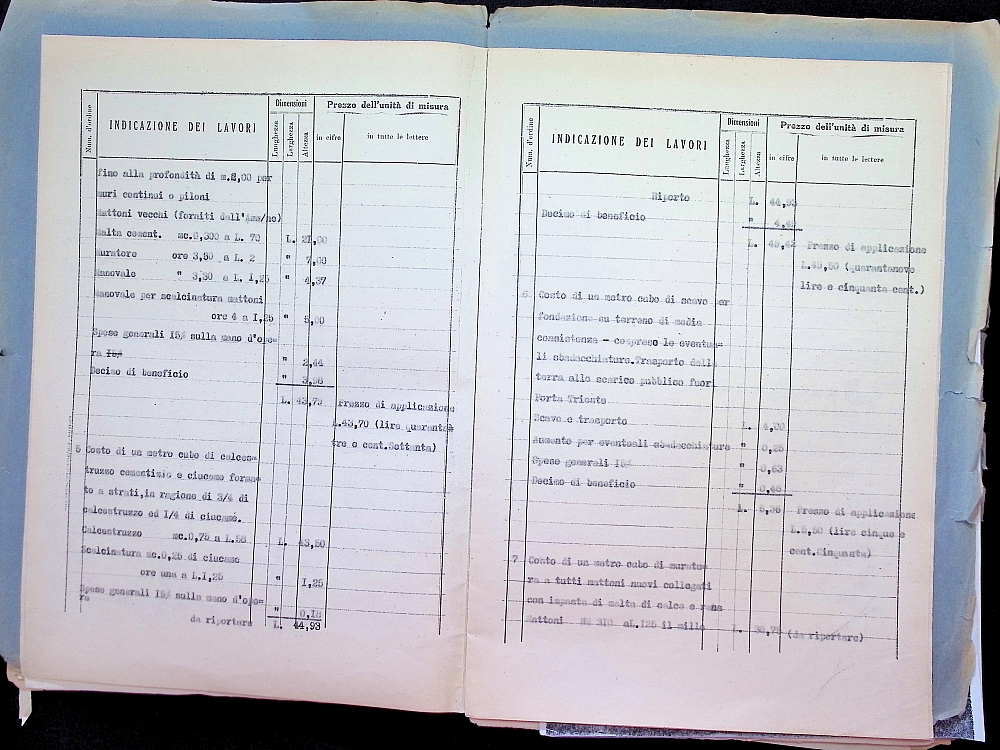 Num. d'ordine
INDICAZIONE DEI LAVORI
Dimensioni
Lunghezza
Larghezza
Altezza
Prezzo dell'unità di misura
in cifre
in tutte le lettere
fino alla profondità di m.2,00 per
muri continui o piloni
Mattoni vecchi (forniti dall'Amm/ne)
Malta cement. mc.0,300 a L. 70 L. 21,00
Muratore ore 3,50 a L. 2 " 7,00
Manovale " 3,50 a L. I,25 " 4,37
Manovale per scalcinatura mattoni
ore 4 a I,25 " 5,00
Spese generali I5% sulla mano d'ope=
ra I5% " 2,44
Decimo di beneficio " 3,98
L. 43,79 Prezzo di applicazione
L.43,70 (lire quaranta
tre e cent.Settanta)
5 Costo di un metro cubo di calces=
truzzo cementizio e ciucame forma=
to a strati,in ragione di 3/4 di
calcestruzzo ed I/4 di ciucame.
Calcestruzzo mc.0,75 a L.58 L. 43,50
Scalcinatura mc.0,25 di ciucame
ore una a L.I,25 " I,25
Spese generali I5% sulla mano d'ope=
ra " 0,18
da riportare L. 44,93
Num. d'ordine
INDICAZIONE DEI LAVORI
Dimensioni
Lunghezza
Larghezza
Altezza
Prezzo dell'unità di misura
in cifre
in tutte le lettere
Riporto L. 44,93
Decimo di beneficio " 4,49
L. 49,42 Prezzo di applicazione
L.49,50 (quarantanove
lire e cinquanta cent.)
6 Costo di un metro cubo di scavo per
fondazione su terreno di media
consistenza - compreso le eventua=
li sbadacchiature.Trasporto della
terra allo scarico pubblico fuori
Porta Trieste
Scavo e trasporto L. 4,00
Aumento per eventuali sbadacchiature " 0,25
Spese generali I5% " 0,63
Decimo di beneficio " 0,48
L. 5,36 Prezzo di applicazione
L.5,50 (lire cinque e
cent.Cinquanta)
7 Costo di un metro cubo di muratu=
ra a tutti mattoni nuovi collegati
con impasto di malta di calce e rena
Mattoni N° 310 a L.I25 il mille L. 38,75 (da riportare)